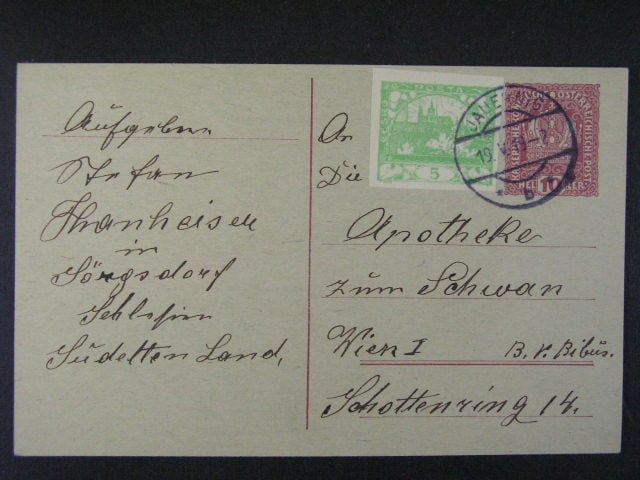 Aufgeber
Stefan
Thanheiser
in
Jörgsdorf
Schlesien
Sudetten Land,
An
Die
POŠTA
5
JAUERNIG
19
b
10
HELLER
Apotheke
zum Schwan
Wien I B. v. Bibus.
Schottenring 14.